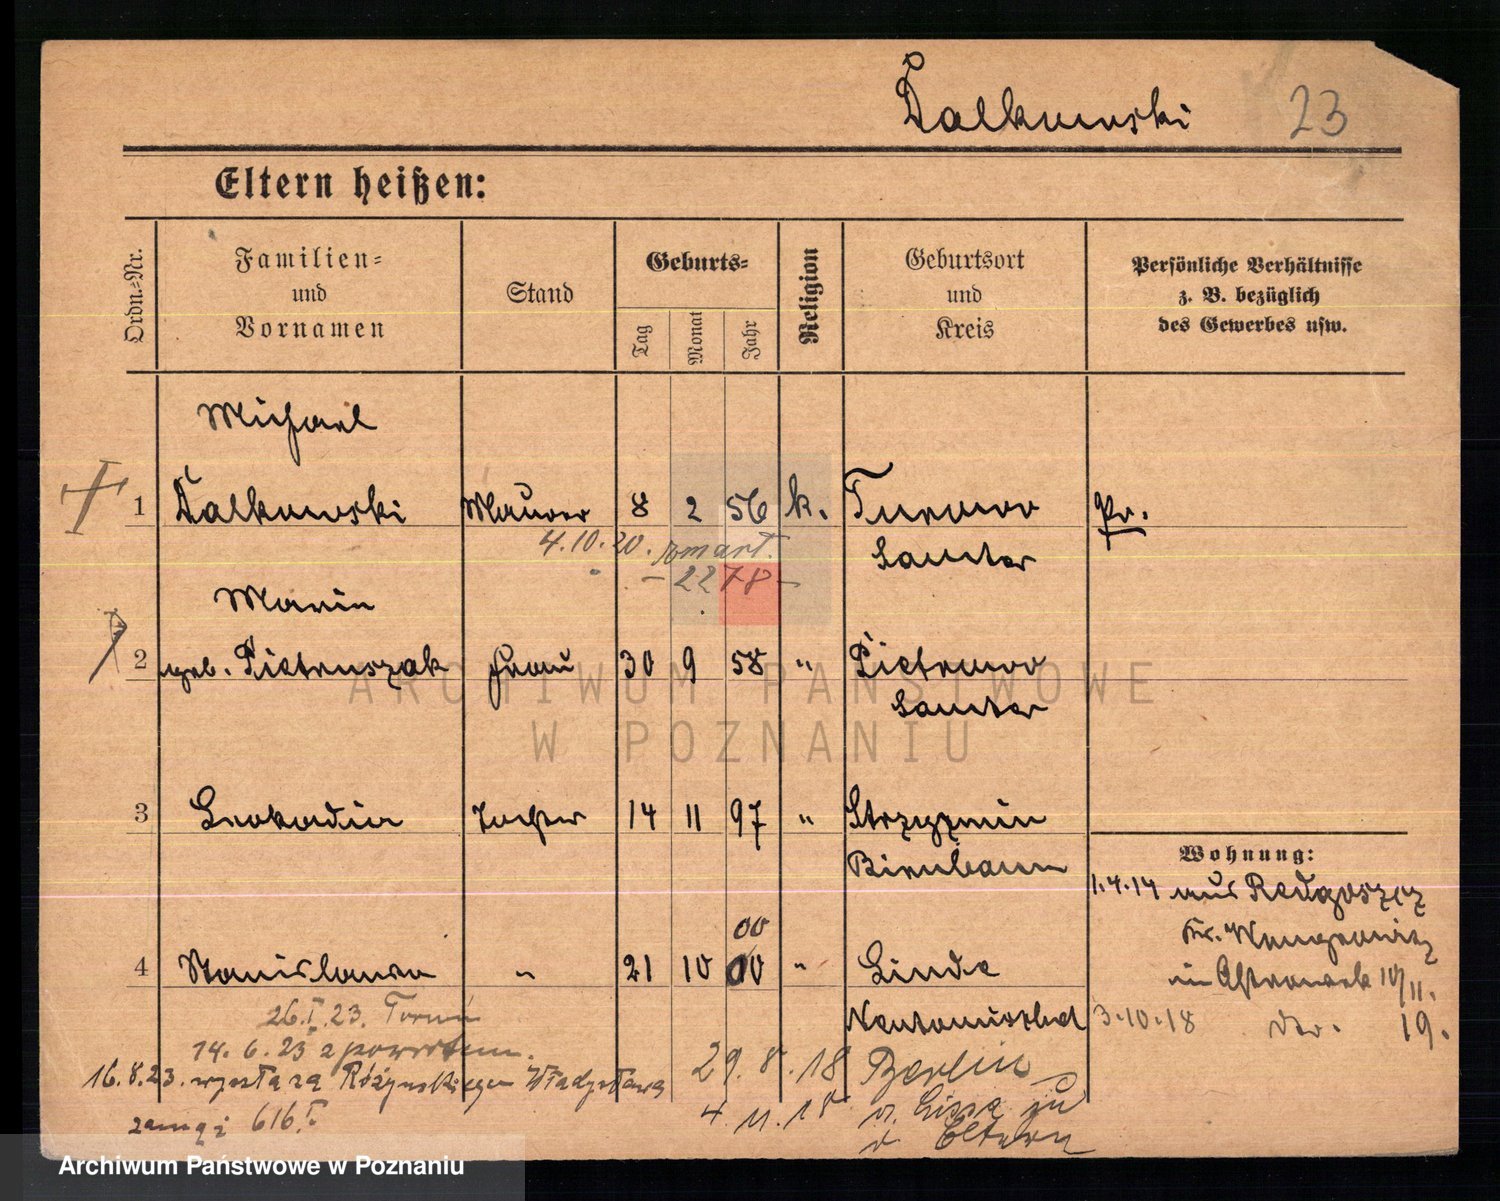 Dalkowski 23
Eltern heißen:
Ordn.-Nr.
Familien-
und
Vornamen
Stand
Geburts-
Tag
Monat
Jahr
Religion
Geburtsort
und
Kreis
Persönliche Verhältnisse
z. B. bezüglich
des Gewerbes usw.
Michael
1 Dalkowski Maurer 8 2 56 k. Turowo Pr.
Samter
4.10.20. zmart.
- 2278 -
Maria
2 geb. Pietruszak Frau 30 9 58 " Pietrowo
Samter
3 Leokadia Tochter 14 11 97 " Strzyzmin
Birnbaum
00
4 Stanislawa " 21 10 00 " Linde
Neutomischel
Wohnung:
1.4.14 aus Redgoszcz
Kr. Wongrowitz
in 10/11.
3.10.18 19.
26.I.23. Toruń
14.6.23 z powrotem.
16.8.23. wyszła za Różynskiego Władysława
zamąż 616.I
29.8.18 Berlin
4.11.18 v. Lissa zu
d. Eltern
ARCHIWUM PAŃSTWOWE
W POZNANIU
Archiwum Państwowe w Poznaniu